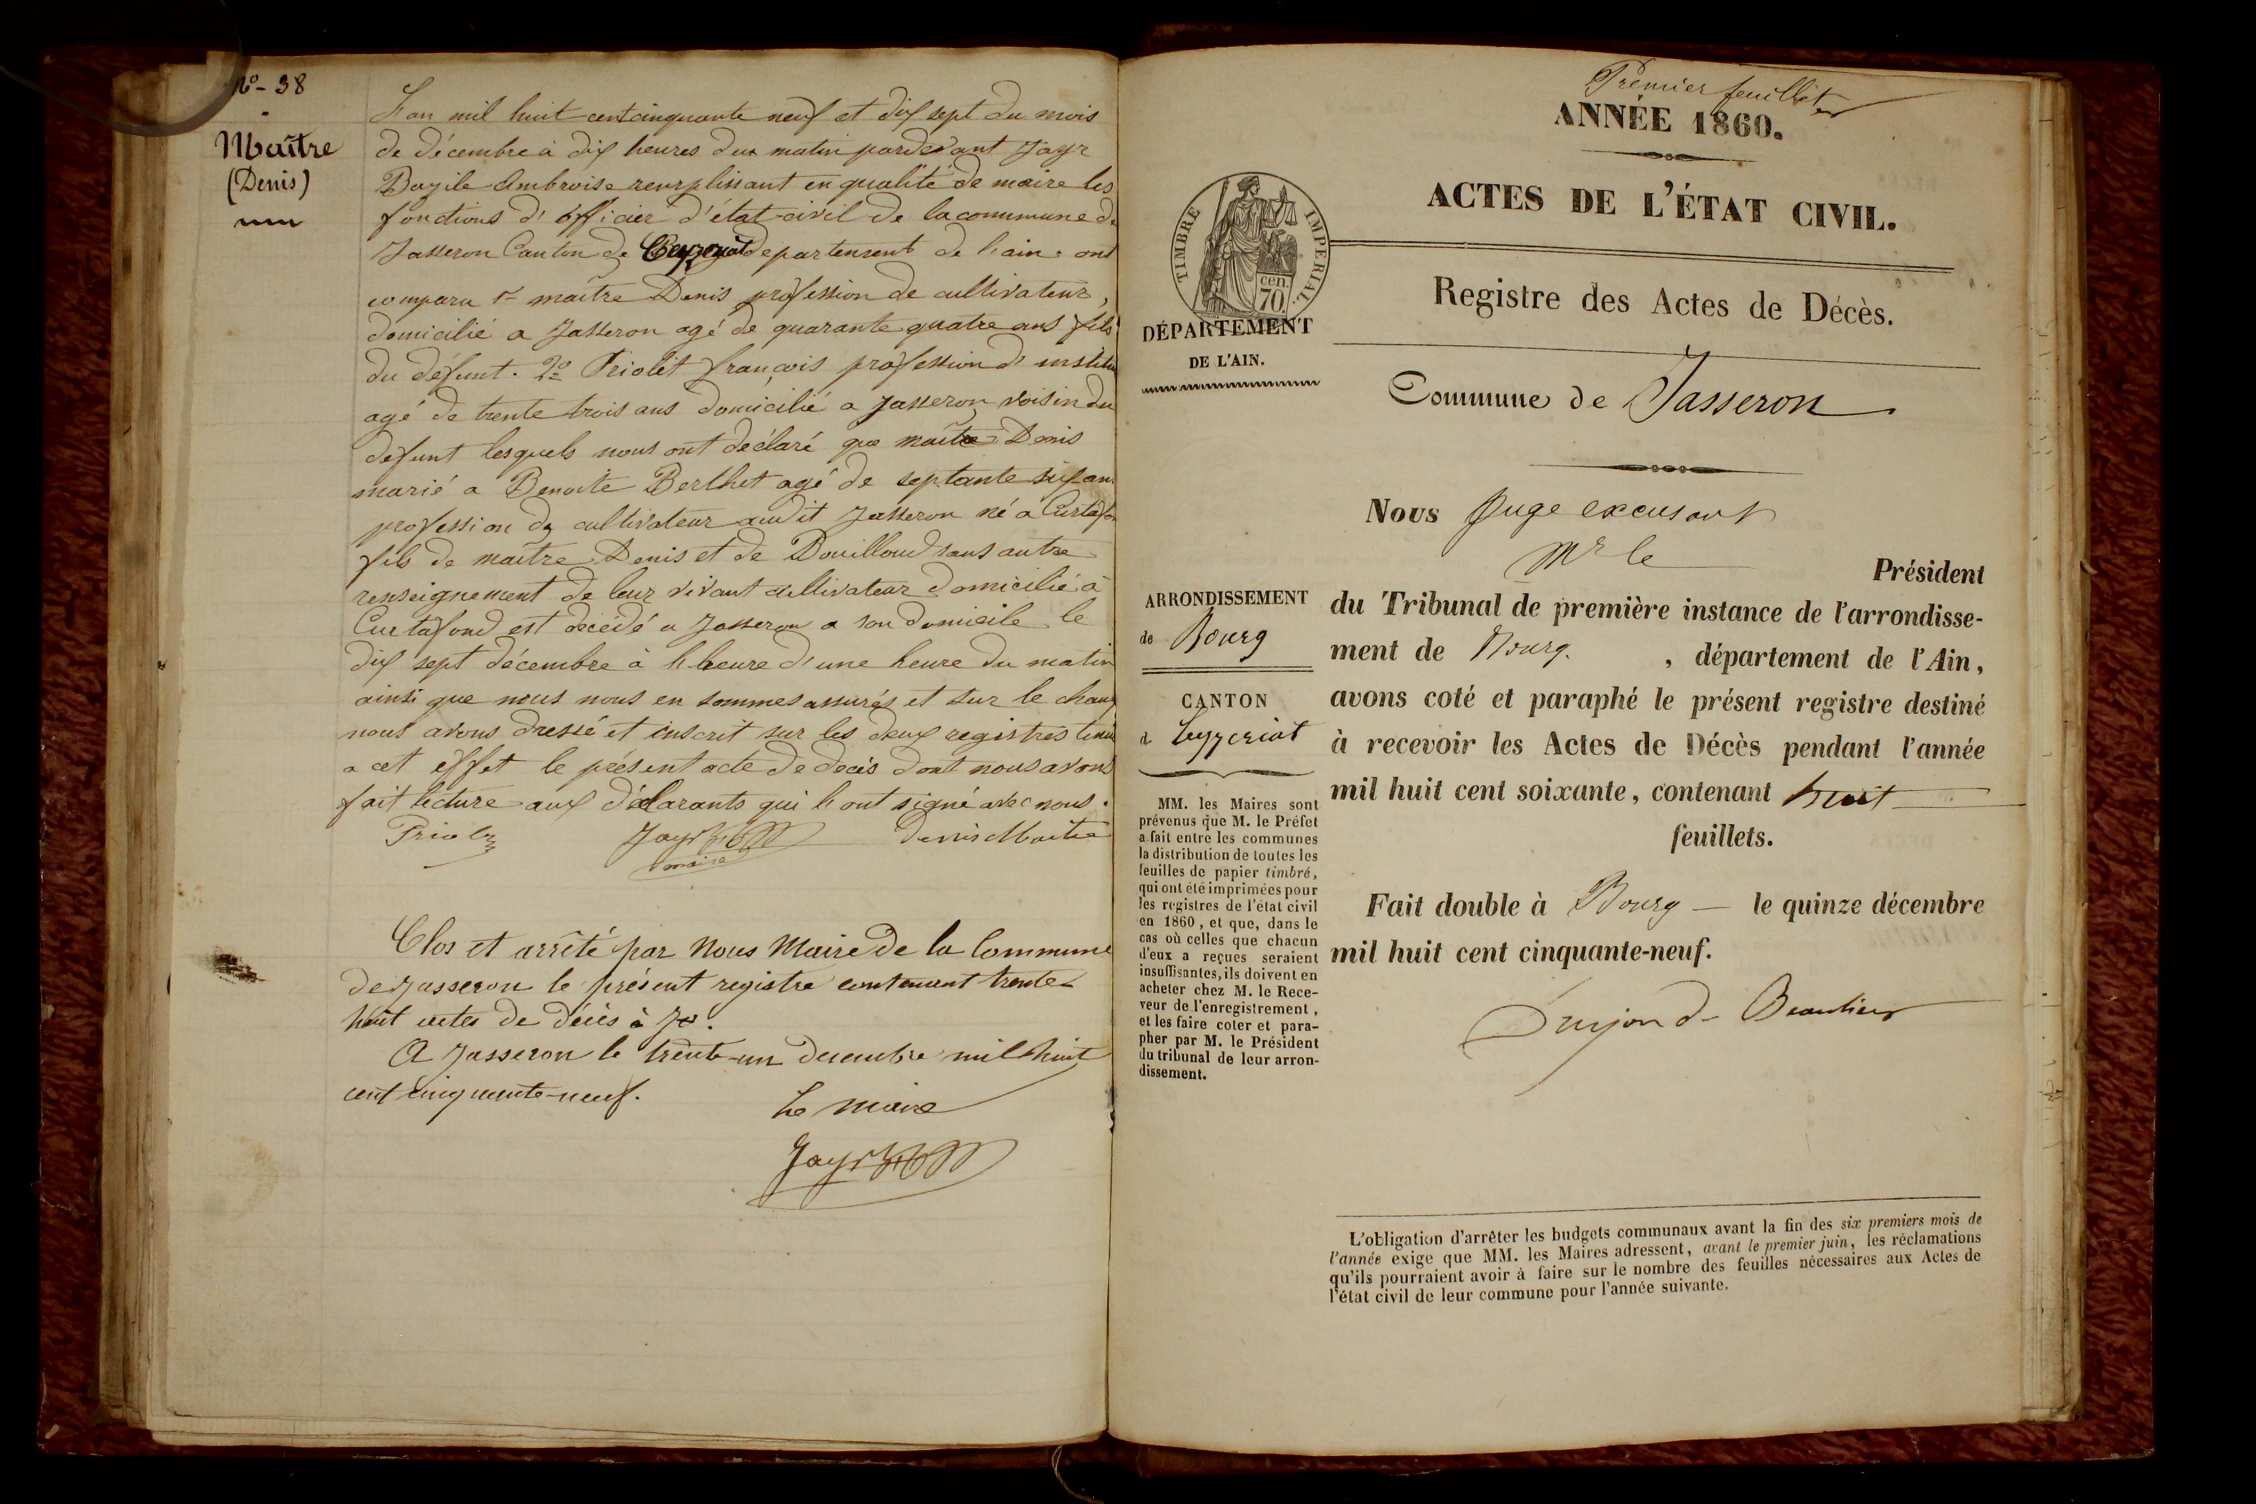 No - 38
Maître
(Denis)
L'an mil huit cent cinquante neuf et dix sept du mois
de décembre à dix heures du matin pardevant Jayr
Bazile Ambroise remplissant en qualité de maire les
fonctions d'officier d'état-civil de la commune de
Jasseron Canton de Ceyzeriat departement de l'ain. ont
comparu 1º maître Denis profession de cultivateur,
domicilié a Jasseron agé de quarante quatre ans fils
du défunt. 2º Priolet françois profession d'
agé de trente trois ans domicilié a Jasseron voisin du
defunt lesquels nous ont déclaré que maître Denis
marié a Benoite Berthet agé de septante six ans
profession de cultivateur audit Jasseron né a
fils de maître Denis et de Douilloud sans autre
renseignement de leur vivant cultivateur domicilié à
Curtafond est décédé a Jasseron a son domicile le
dix sept décembre à l'heure d'une heure du matin
ainsi que nous nous en sommes assurés et sur le champ
nous avons dressé et inscrit sur les deux registres tenus
a cet effet le présent acte de decès dont nous avons
fait lecture aux déclarants qui l'ont signé avec nous.
Jayr Denis Maitre
maire
Clos et arrêté par Nous Maire de la Commune
de Jasseron le présent registre contenant trente
huit actes de décès à
A Jasseron le trente-un decembre mil huit
cent cinquante-neuf.
Le maire
Jayr
Premier feuillet
ANNÉE 1860.
ACTES DE L'ÉTAT CIVIL.
TIMBRE IMPERIAL.
cen.
70
DÉPARTEMENT
DE L'AIN.
Registre des Actes de Décès.
Commune de Jasseron
ARRONDISSEMENT
de Bourg
CANTON
d Ceyzeriat
MM. les Maires sont
prévenus que M. le Préfet
a fait entre les communes
la distribution de toutes les
feuilles de papier timbré,
qui ont été imprimées pour
les registres de l'état civil
en 1860, et que, dans le
cas où celles que chacun
d'eux a reçues seraient
insuffisantes, ils doivent en
acheter chez M. le Rece-
veur de l'enregistrement,
et les faire coter et para-
pher par M. le Président
du tribunal de leur arron-
dissement.
Nous Juge excusant
Mr le Président
du Tribunal de première instance de l'arrondisse-
ment de Bourg. , département de l'Ain,
avons coté et paraphé le présent registre destiné
à recevoir les Actes de Décès pendant l'année
mil huit cent soixante, contenant huit
feuillets.
Fait double à Bourg — le quinze décembre
mil huit cent cinquante-neuf.
L'obligation d'arrêter les budgets communaux avant la fin des six premiers mois de
l'année exige que MM. les Maires adressent, avant le premier juin, les réclamations
qu'ils pourraient avoir à faire sur le nombre des feuilles nécessaires aux Actes de
l'état civil de leur commune pour l'année suivante.